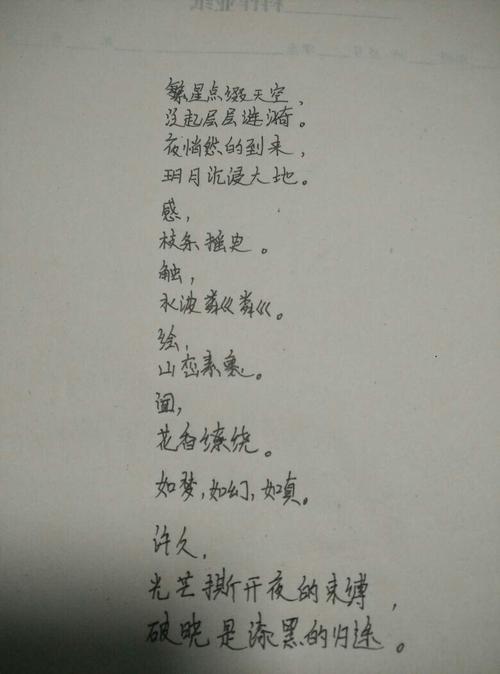 繁星点缀天空，
没起层层涟漪。
夜悄然的到来，
玥月沉浸大地。
感，
枝条摇曳。
触，
水波粼粼。
绘，
山峦素裹。
花香缭绕。
如梦，如幻，如真。
许久，
光芒撕开夜的束缚，
破晓是漆黑的归途。